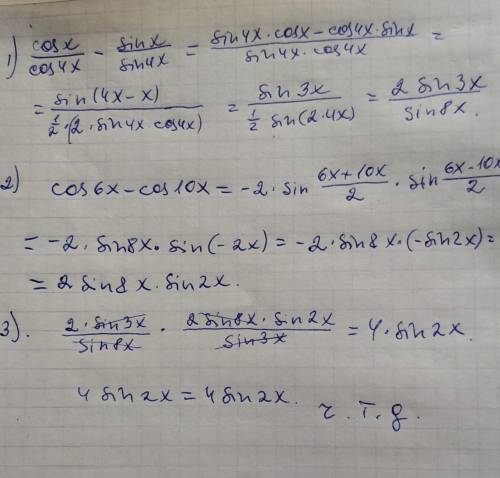 1) cosx/cos4x - sinx/sin4x = (sin4x·cosx - cos4x·sinx)/(sin4x·cos4x) =
= sin(4x-x)/(1/2·(2·sin4x cos4x) = sin3x/(1/2 sin(2·4x)) = 2 sin3x/sin8x.
2) cos6x - cos10x = -2·sin (6x+10x)/2 · sin (6x-10x)/2
= -2·sin8x·sin(-2x) = -2·sin8x·(-sin2x) =
= 2 sin8x·sin2x.
3). 2·sin3x/sin8x · 2sin8x·sin2x/sin3x = 4·sin2x.
4 sin2x = 4 sin2x. ч.т.д.